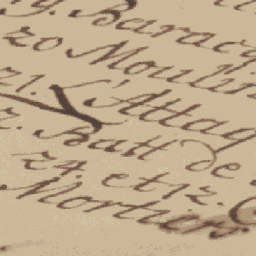 y. Barac
20 Moulin
21. L'Attaq
2. Batt de
24. et 12.
Mortiers